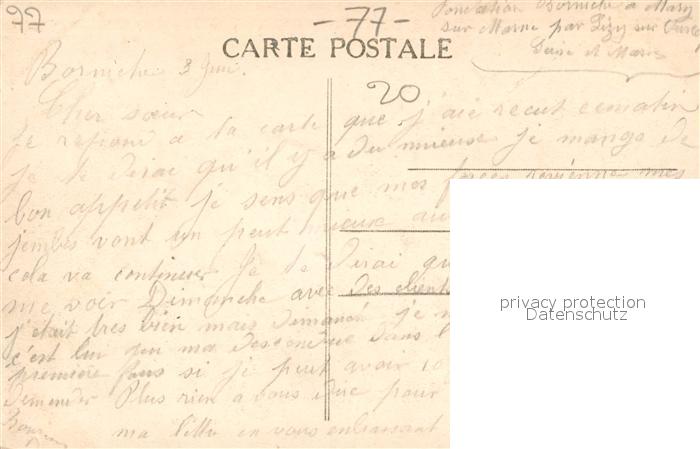 77
- 77 -
Fondation Borniche à Mary
sur Marne par Lizy sur Ourcq
Seine et Marne
CARTE POSTALE
Borniche 3 Juin.
20
Cher sœur
Je repond a la carte que j'aie recut ce matin
je te dirai qu'il y a du mieuse je mange de
bon appetit je sens que mes forces révienne mes
jembes vont un peut mieux au
cela va continuer Je te dirai qu
me voir Dimanche avec des client
j'était tres bien mais dimanch je
c'est lui qui ma descendue dans l
première fois si je peut avoir 10
demender Plus rien a vous dire pour
ma lettre en vous embrassant
privacy protection
Datenschutz